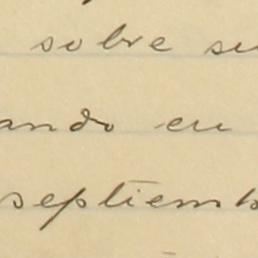 sobre su
ando en
septiemb